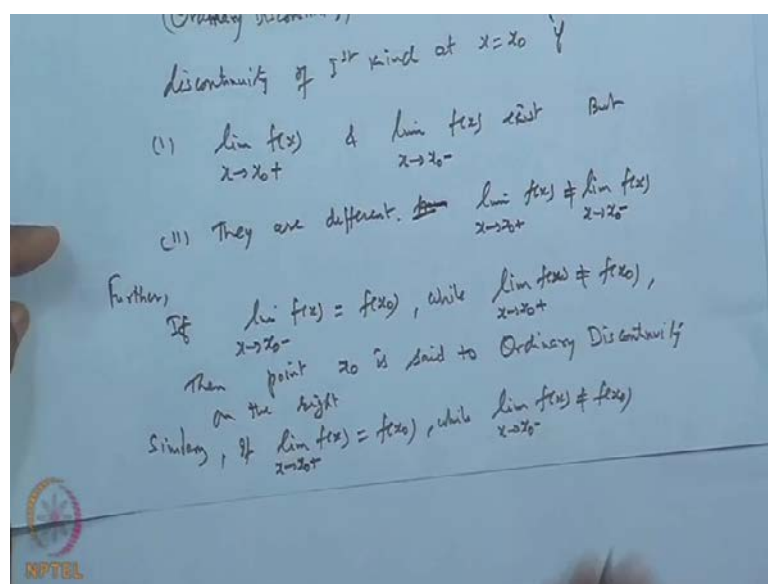 (Ordinary Discontinuity)
discontinuity of Ist kind at x = x0 if
(i) lim f(x) & lim f(x) exist But
x→x0+ x→x0-
(ii) They are different. lim f(x) ≠ lim f(x)
x→x0+ x→x0-
Further,
If lim f(x) = f(x0), while lim f(x) ≠ f(x0),
x→x0- x→x0+
Then point x0 is said to Ordinary Discontinuity
on the right
Similarly, If lim f(x) = f(x0), while lim f(x) ≠ f(x0)
x→x0+ x→x0-
NPTEL